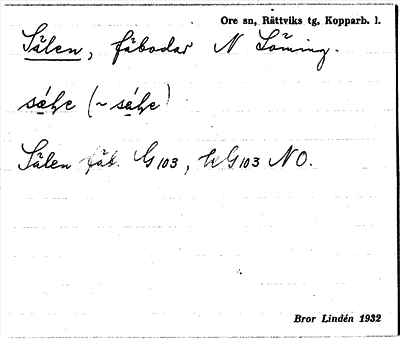 Ore sn, Rättviks tg. Kopparb. l.
Sälen, fäbodar N Löning.
Sälen fäb. G103, hG103 NO.
Bror Lindén 1932